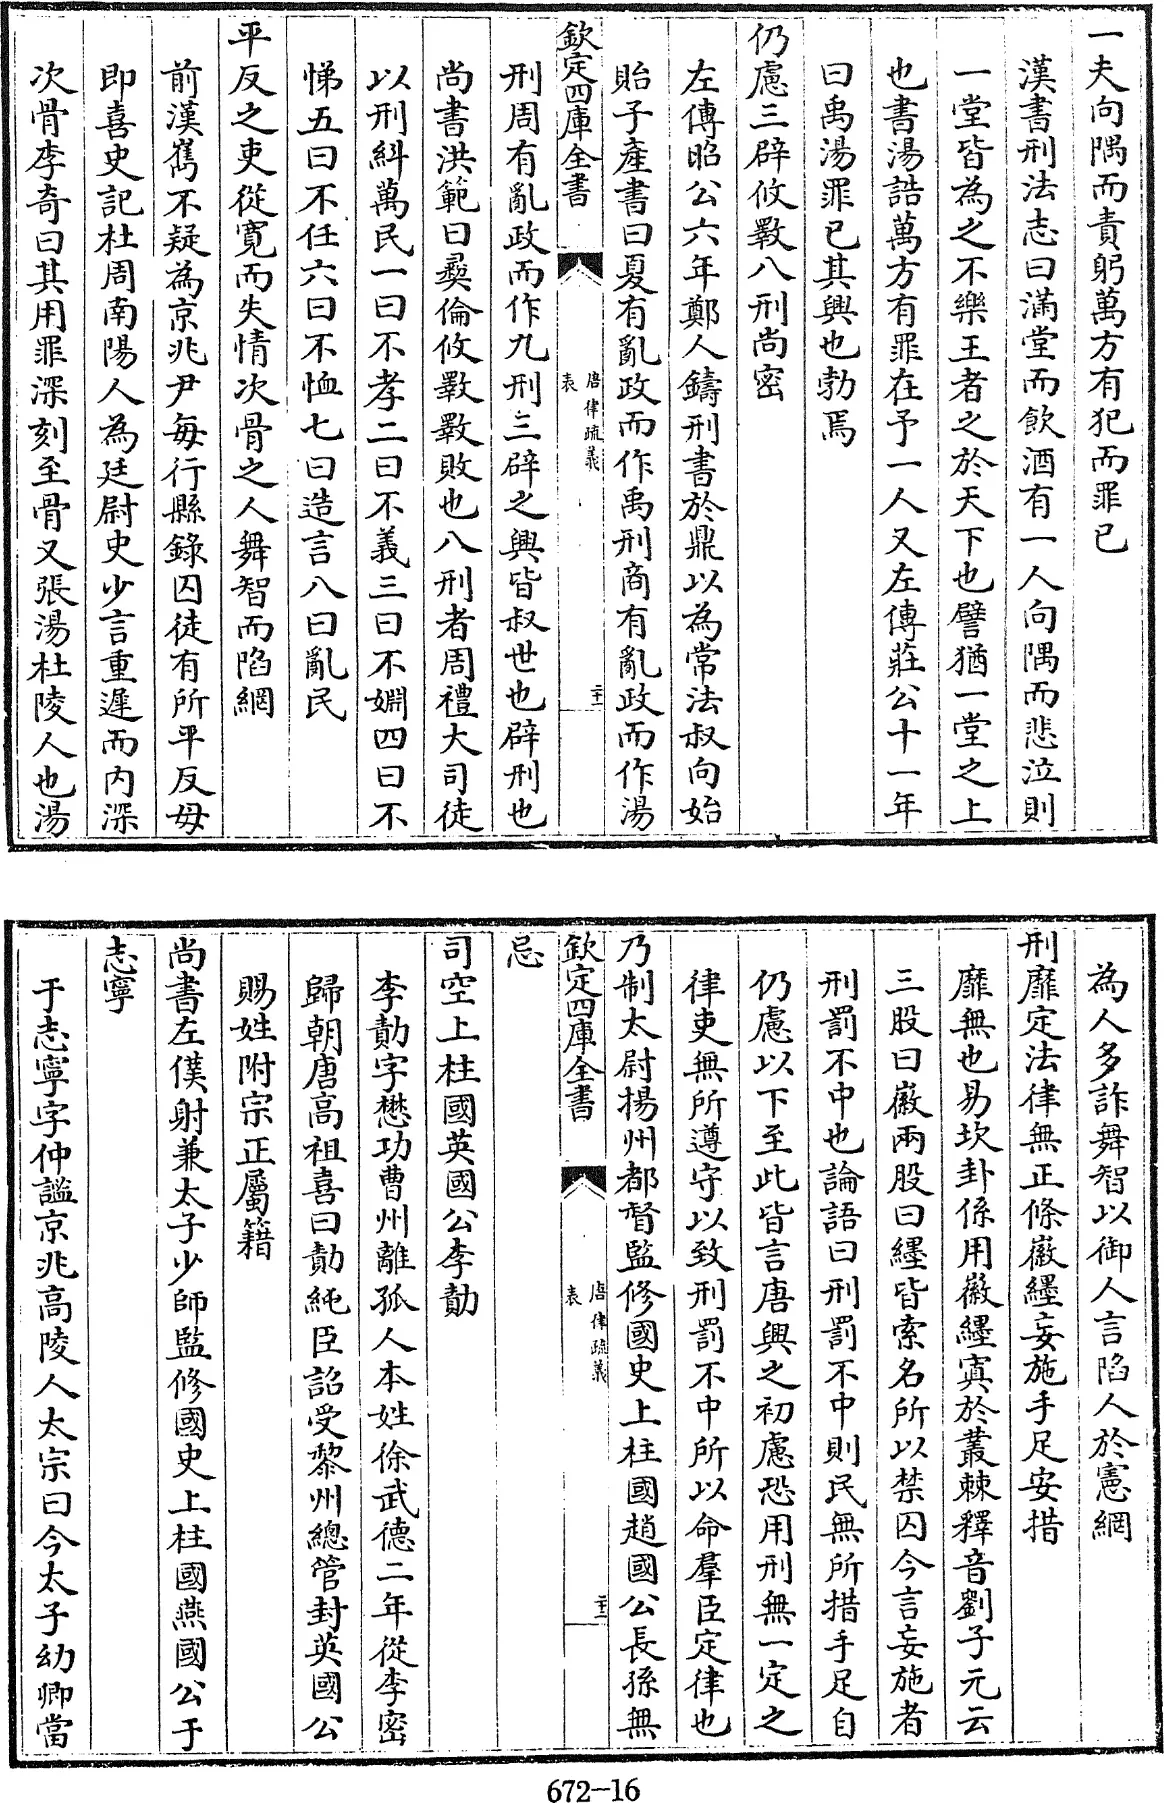 一夫向隅而責躬萬方有犯而罪已
漢書刑法志曰滿堂而飲酒有一人向隅而悲泣則
一堂皆為之不樂王者之於天下也譬猶一堂之上
也書湯誥萬方有罪在予一人又左傳莊公十一年
曰禹湯罪已其興也勃焉
仍慮三辟攸斁八刑尚密
左傳昭公六年鄭人鑄刑書於鼎以為常法叔向始
貽子產書曰夏有亂政而作禹刑商有亂政而作湯
欽定四庫全書
唐律疏義
表
二十一
刑周有亂政而作九刑三辟之興皆叔世也辟刑也
尚書洪範曰彝倫攸斁斁敗也八刑者周禮大司徒
以刑糾萬民一曰不孝二曰不義三曰不婣四曰不
悌五曰不任六曰不恤七曰造言八曰亂民
平反之吏從寬而失情次骨之人舞智而陷網
前漢雋不疑為京兆尹每行縣錄囚徒有所平反母
即喜史記杜周南陽人為廷尉史少言重遲而內深
次骨李奇曰其用罪深刻至骨又張湯杜陵人也湯
為人多詐舞智以御人言陷人於憲網
刑靡定法律無正條徽纆妄施手足安措
靡無也易坎卦係用徽纆寘於叢棘釋音劉子元云
三股曰徽兩股曰纆皆索名所以禁囚今言妄施者
刑罰不中也論語曰刑罰不中則民無所措手足自
仍慮以下至此皆言唐興之初慮恐用刑無一定之
律吏無所遵守以致刑罰不中所以命羣臣定律也
乃制太尉揚州都督監修國史上柱國趙國公長孫無
欽定四庫全書
唐律疏義
表
忌
司空上柱國英國公李勣
李勣字懋功曹州離孤人本姓徐武德二年從李密
歸朝唐高祖喜曰勣純臣詔受黎州總管封英國公
賜姓附宗正屬籍
尚書左僕射兼太子少師監修國史上柱國燕國公于
志寧
于志寧字仲謐京兆高陵人太宗曰今太子幼卿當
672-16